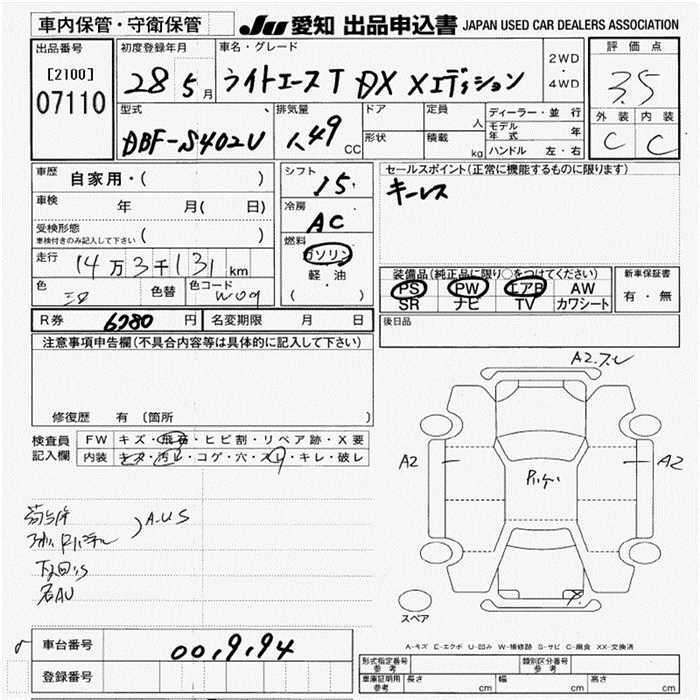 車内保管・守衛保管
JU 愛知 出品申込書 JAPAN USED CAR DEALERS ASSOCIATION
出品番号
[2100]
07110
初度登録年月
28 5月
車名・グレード
ライトエースT DX Xエディション
2WD
・
4WD
評価点
3.5
外装 内装
C C
型式
DBF-S402U
排気量
1.49 CC
ドア
形状
定員 人
積載 kg
ディーラー・並行
モデル年式 年
ハンドル 左・右
車歴 自家用・( )
車検 年 月( 日)
受検形態
車検付きのみ記入して下さい ( )
走行 14万3千131km
色 色替 色コード W09
シフト I5
冷房 AC
燃料
ガソリン
・
軽油
( )
セールスポイント(正常に機能するものに限ります)
キーレス
装備品(純正品に限り○をつけてください)
PS PW エアB AW
SR ナビ TV カワシート
新車保証書
有・無
R券 6780円 名変期限 月 日
後日品
注意事項申告欄(不具合内容等は具体的に記入して下さい)
修復歴 有 (箇所 )
検査員記入欄
FW キズ・飛石・ヒビ割・リペア跡・X要
内装 キズ・汚レ・コゲ・穴・スレ・キレ・破レ
A.U.S
A2
A2
スペア
A-キズ E-エクボ U-凹み W-補修跡 S-サビ C-腐食 XX-交換済
車台番号 00,9,94
登録番号
形式指定番号 参考
類別区分番号 参考
車庫証明用 参考 長さ cm 幅 cm 高さ cm